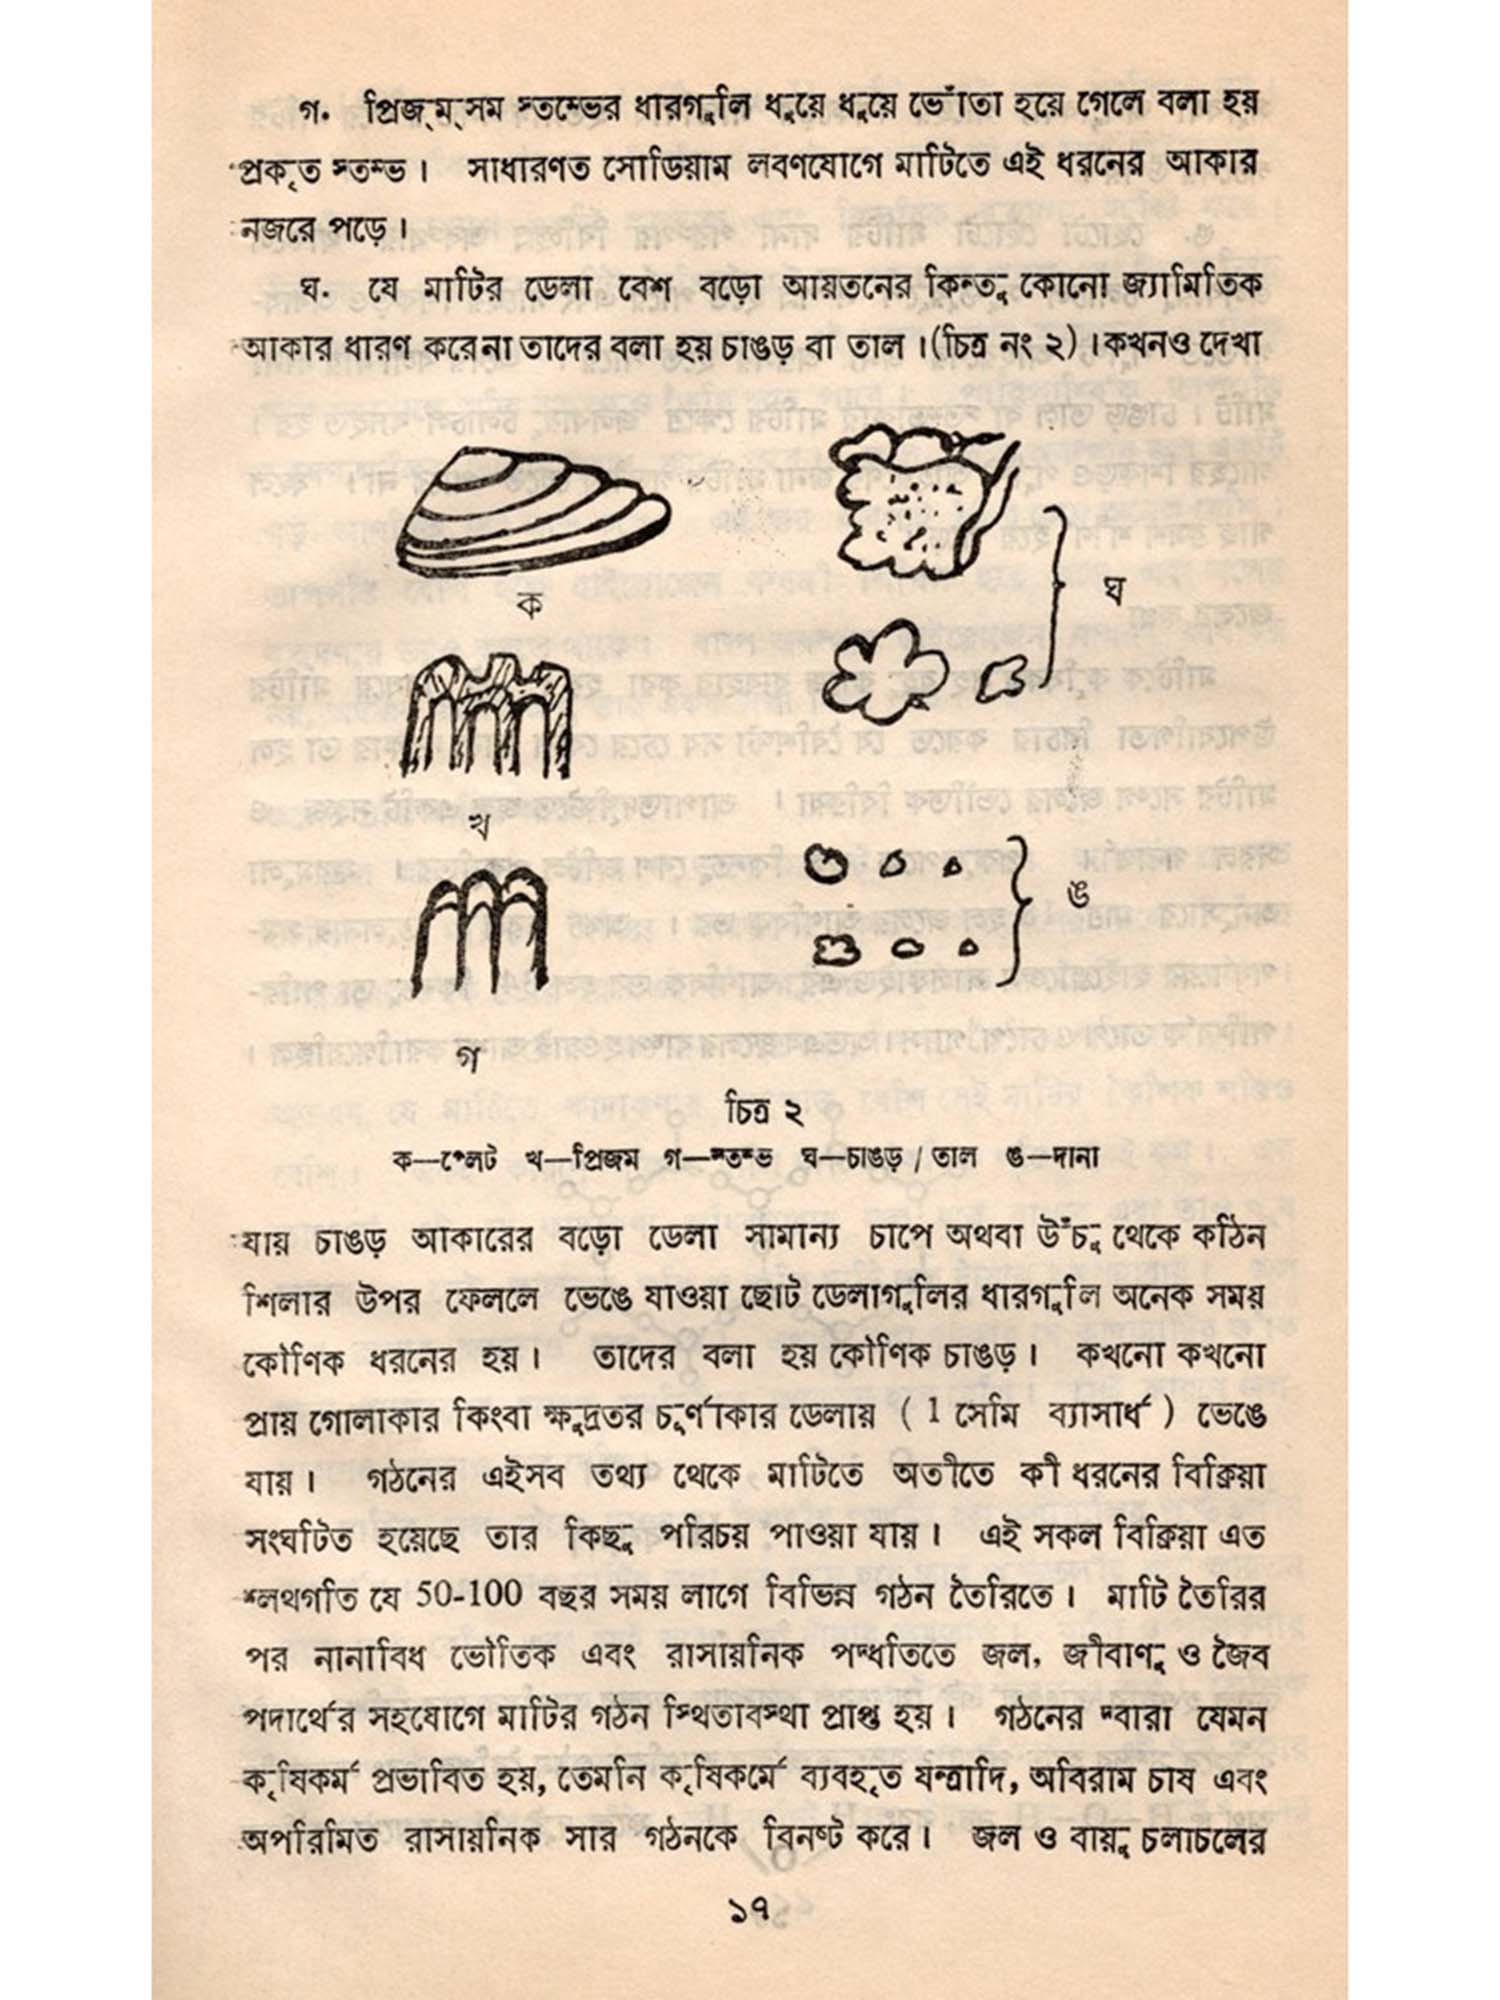 গ. প্রিজ্‌ম্‌সম স্তম্ভের ধারগুলি ধুয়ে ধুয়ে ভোঁতা হয়ে গেলে বলা হয়
প্রকৃত স্তম্ভ। সাধারণত সোডিয়াম লবণযোগে মাটিতে এই ধরনের আকার
নজরে পড়ে।
ঘ. যে মাটির ডেলা বেশ বড়ো আয়তনের কিন্তু কোনো জ্যামিতিক
আকার ধারণ করেনা তাদের বলা হয় চাঙড় বা তাল। (চিত্র নং ২)। কখনও দেখা
ক
ঘ
খ
ঙ
গ
চিত্র ২
ক—প্লেট খ—প্রিজম গ—স্তম্ভ ঘ—চাঙড় / তাল ঙ—দানা
যায় চাঙড় আকারের বড়ো ডেলা সামান্য চাপে অথবা উঁচু থেকে কঠিন
শিলার উপর ফেললে ভেঙে যাওয়া ছোট ডেলাগুলির ধারগুলি অনেক সময়
কৌণিক ধরনের হয়। তাদের বলা হয় কৌণিক চাঙড়। কখনো কখনো
প্রায় গোলাকার কিংবা ক্ষুদ্রতর চূর্ণাকার ডেলায় ( 1 সেমি ব্যাসার্ধ ) ভেঙে
যায়। গঠনের এইসব তথ্য থেকে মাটিতে অতীতে কী ধরনের বিক্রিয়া
সংঘটিত হয়েছে তার কিছু পরিচয় পাওয়া যায়। এই সকল বিক্রিয়া এত
শ্লথগতি যে 50-100 বছর সময় লাগে বিভিন্ন গঠন তৈরিতে। মাটি তৈরির
পর নানাবিধ ভৌতিক এবং রাসায়নিক পদ্ধতিতে জল, জীবাণু ও জৈব
পদার্থের সহযোগে মাটির গঠন স্থিতাবস্থা প্রাপ্ত হয়। গঠনের দ্বারা যেমন
কৃষিকর্ম প্রভাবিত হয়, তেমনি কৃষিকর্মে ব্যবহৃত যন্ত্রাদি, অবিরাম চাষ এবং
অপরিমিত রাসায়নিক সার গঠনকে বিনষ্ট করে। জল ও বায়ু চলাচলের
১৭